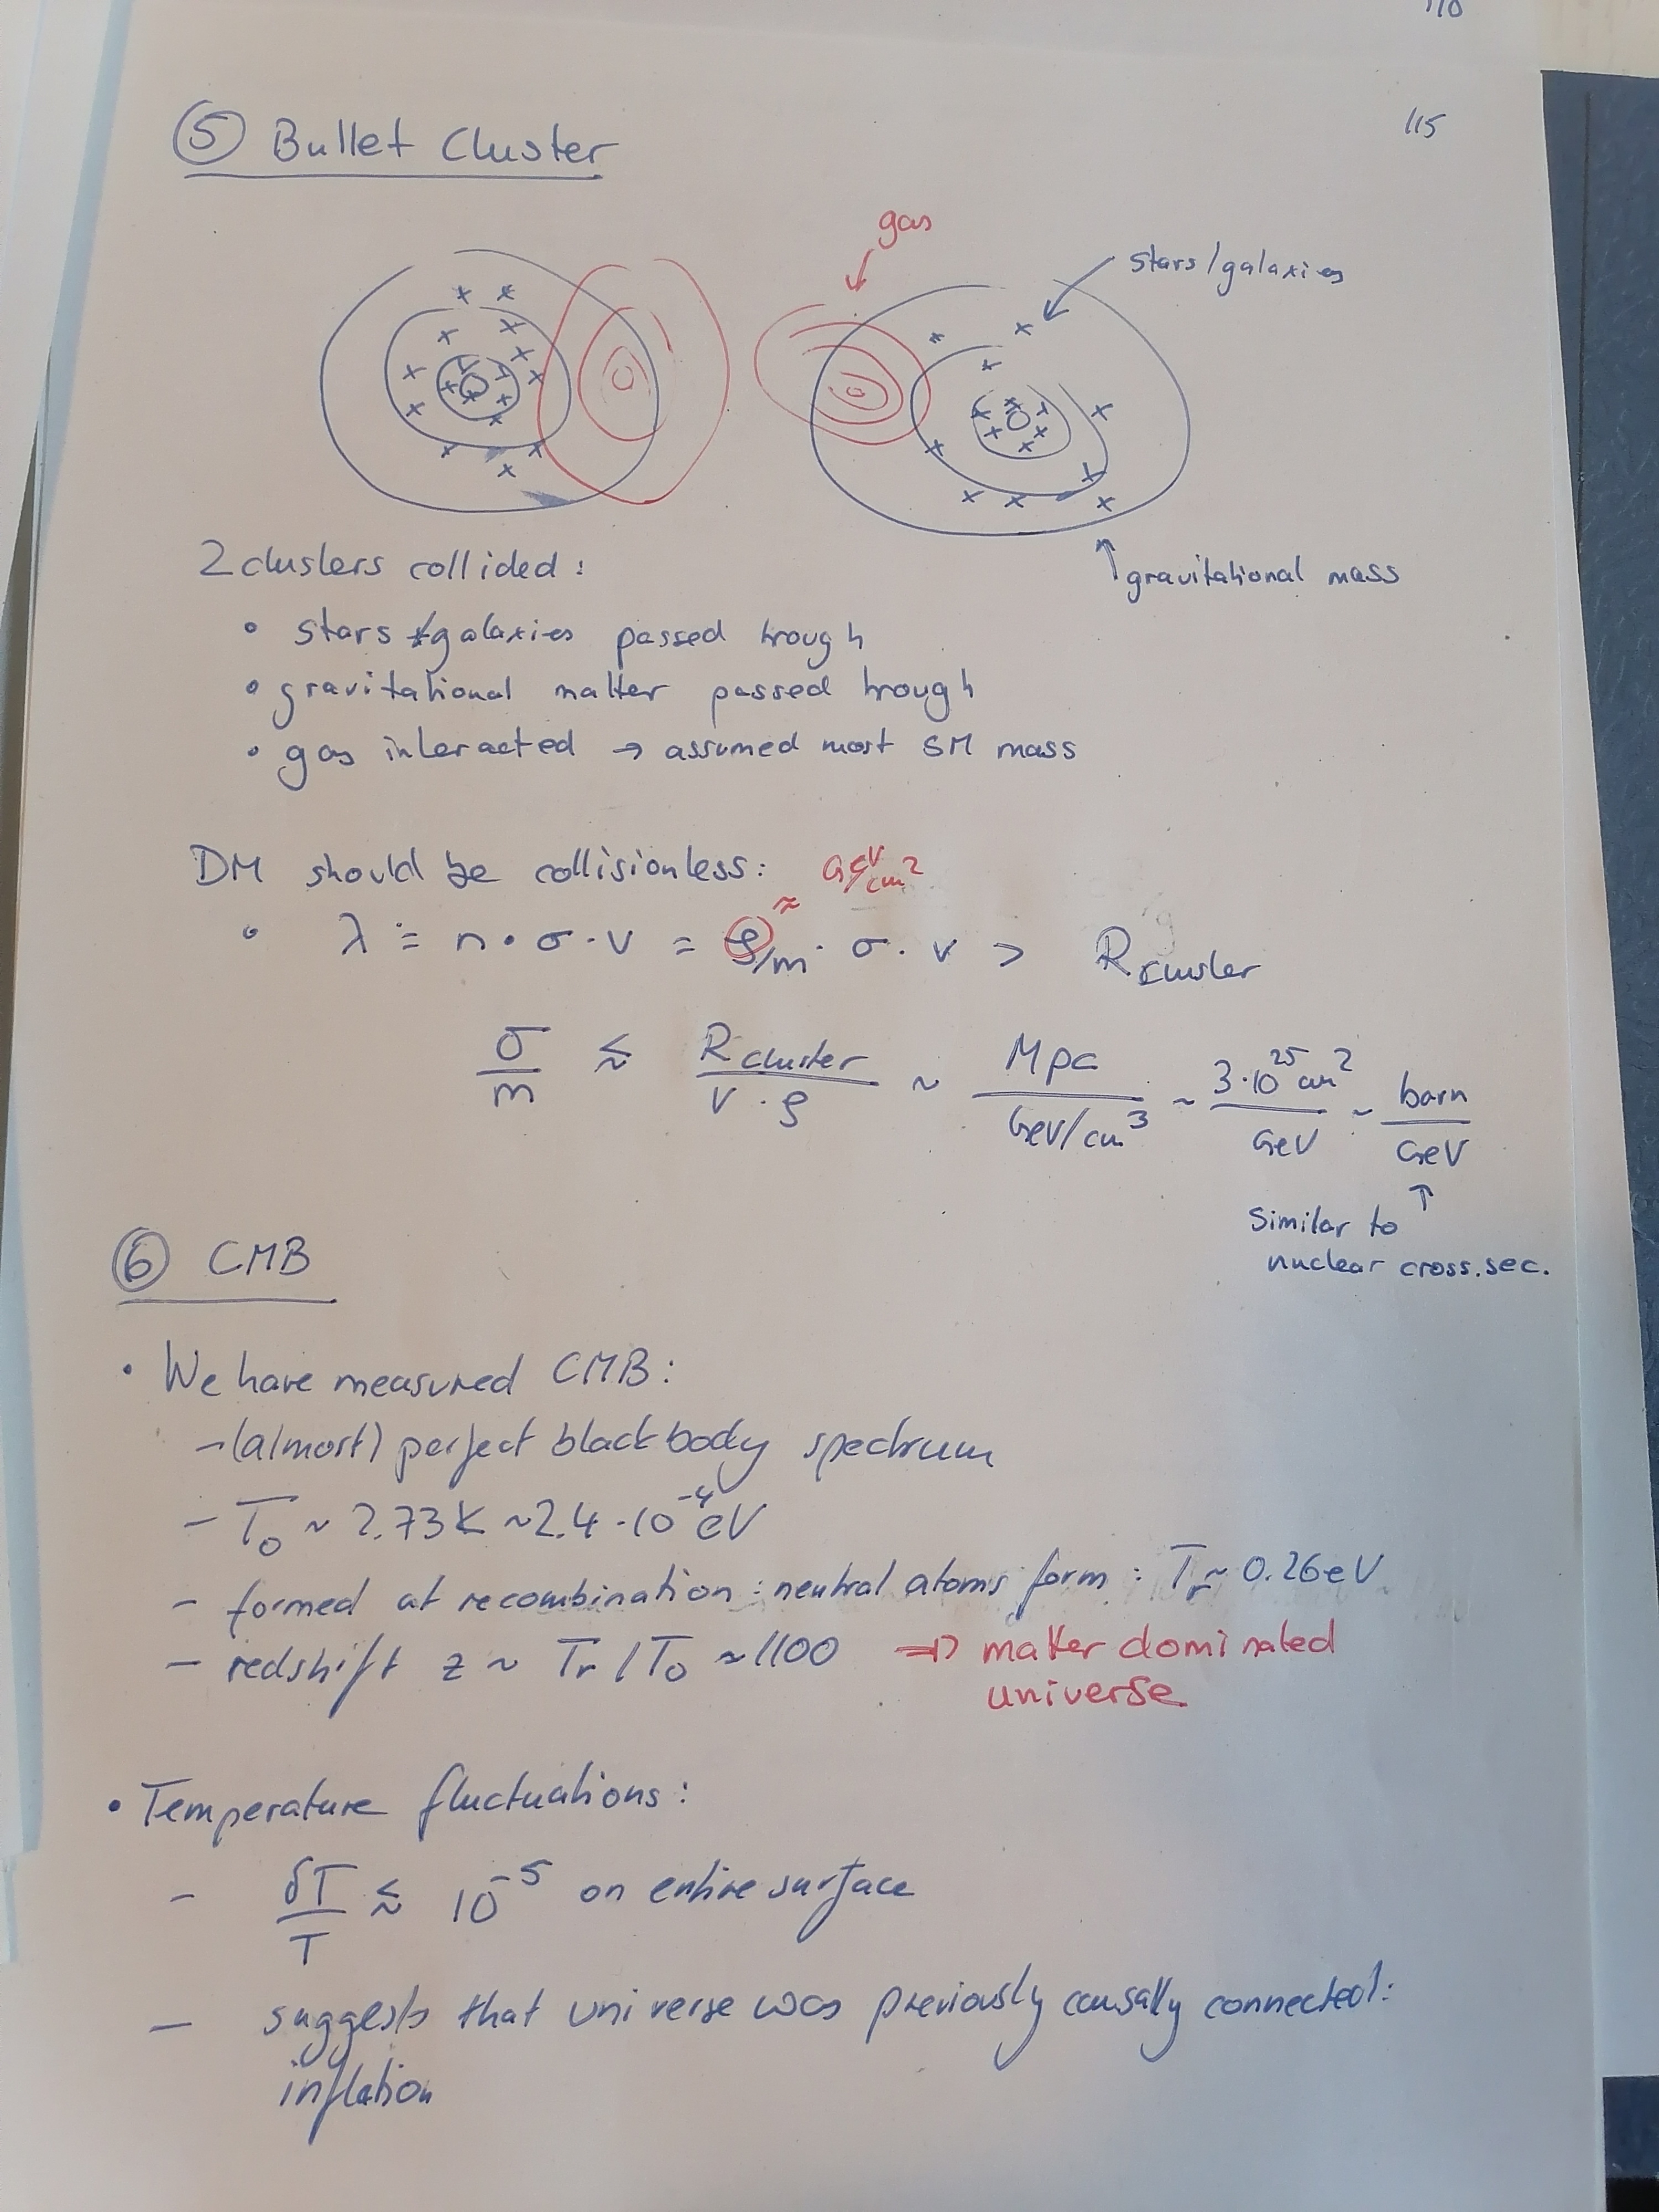 115
⑤ Bullet Cluster
gas
stars/galaxies
gravitational mass
2 clusters collided:
• stars/galaxies passed trough
• gravitational matter passed trough
• gas interacted → assumed most SM mass
DM should be collisionless:
≈ GeV/cm²
• λ ≐ n · σ · v = ρ/m · σ · v > R_cluster
σ/m ≲ R_cluster / (v · ρ) ~ Mpc / (GeV/cm³) ~ 3·10²⁵ cm² / GeV ~ barn / GeV
↑
Similar to
nuclear cross.sec.
⑥ CMB
• We have measured CMB:
– (almost) perfect blackbody spectrum
– T₀ ~ 2.73K ~ 2.4 · 10⁻⁴ eV
– formed at recombination : neutral atoms form : Tᵣ ~ 0.26 eV
– redshift z ~ Tᵣ / T₀ ≈ 1100 ⇒ matter dominated
universe
• Temperature fluctuations:
– δT/T ≲ 10⁻⁵ on entire surface
– suggests that universe was previously causally connected:
inflation